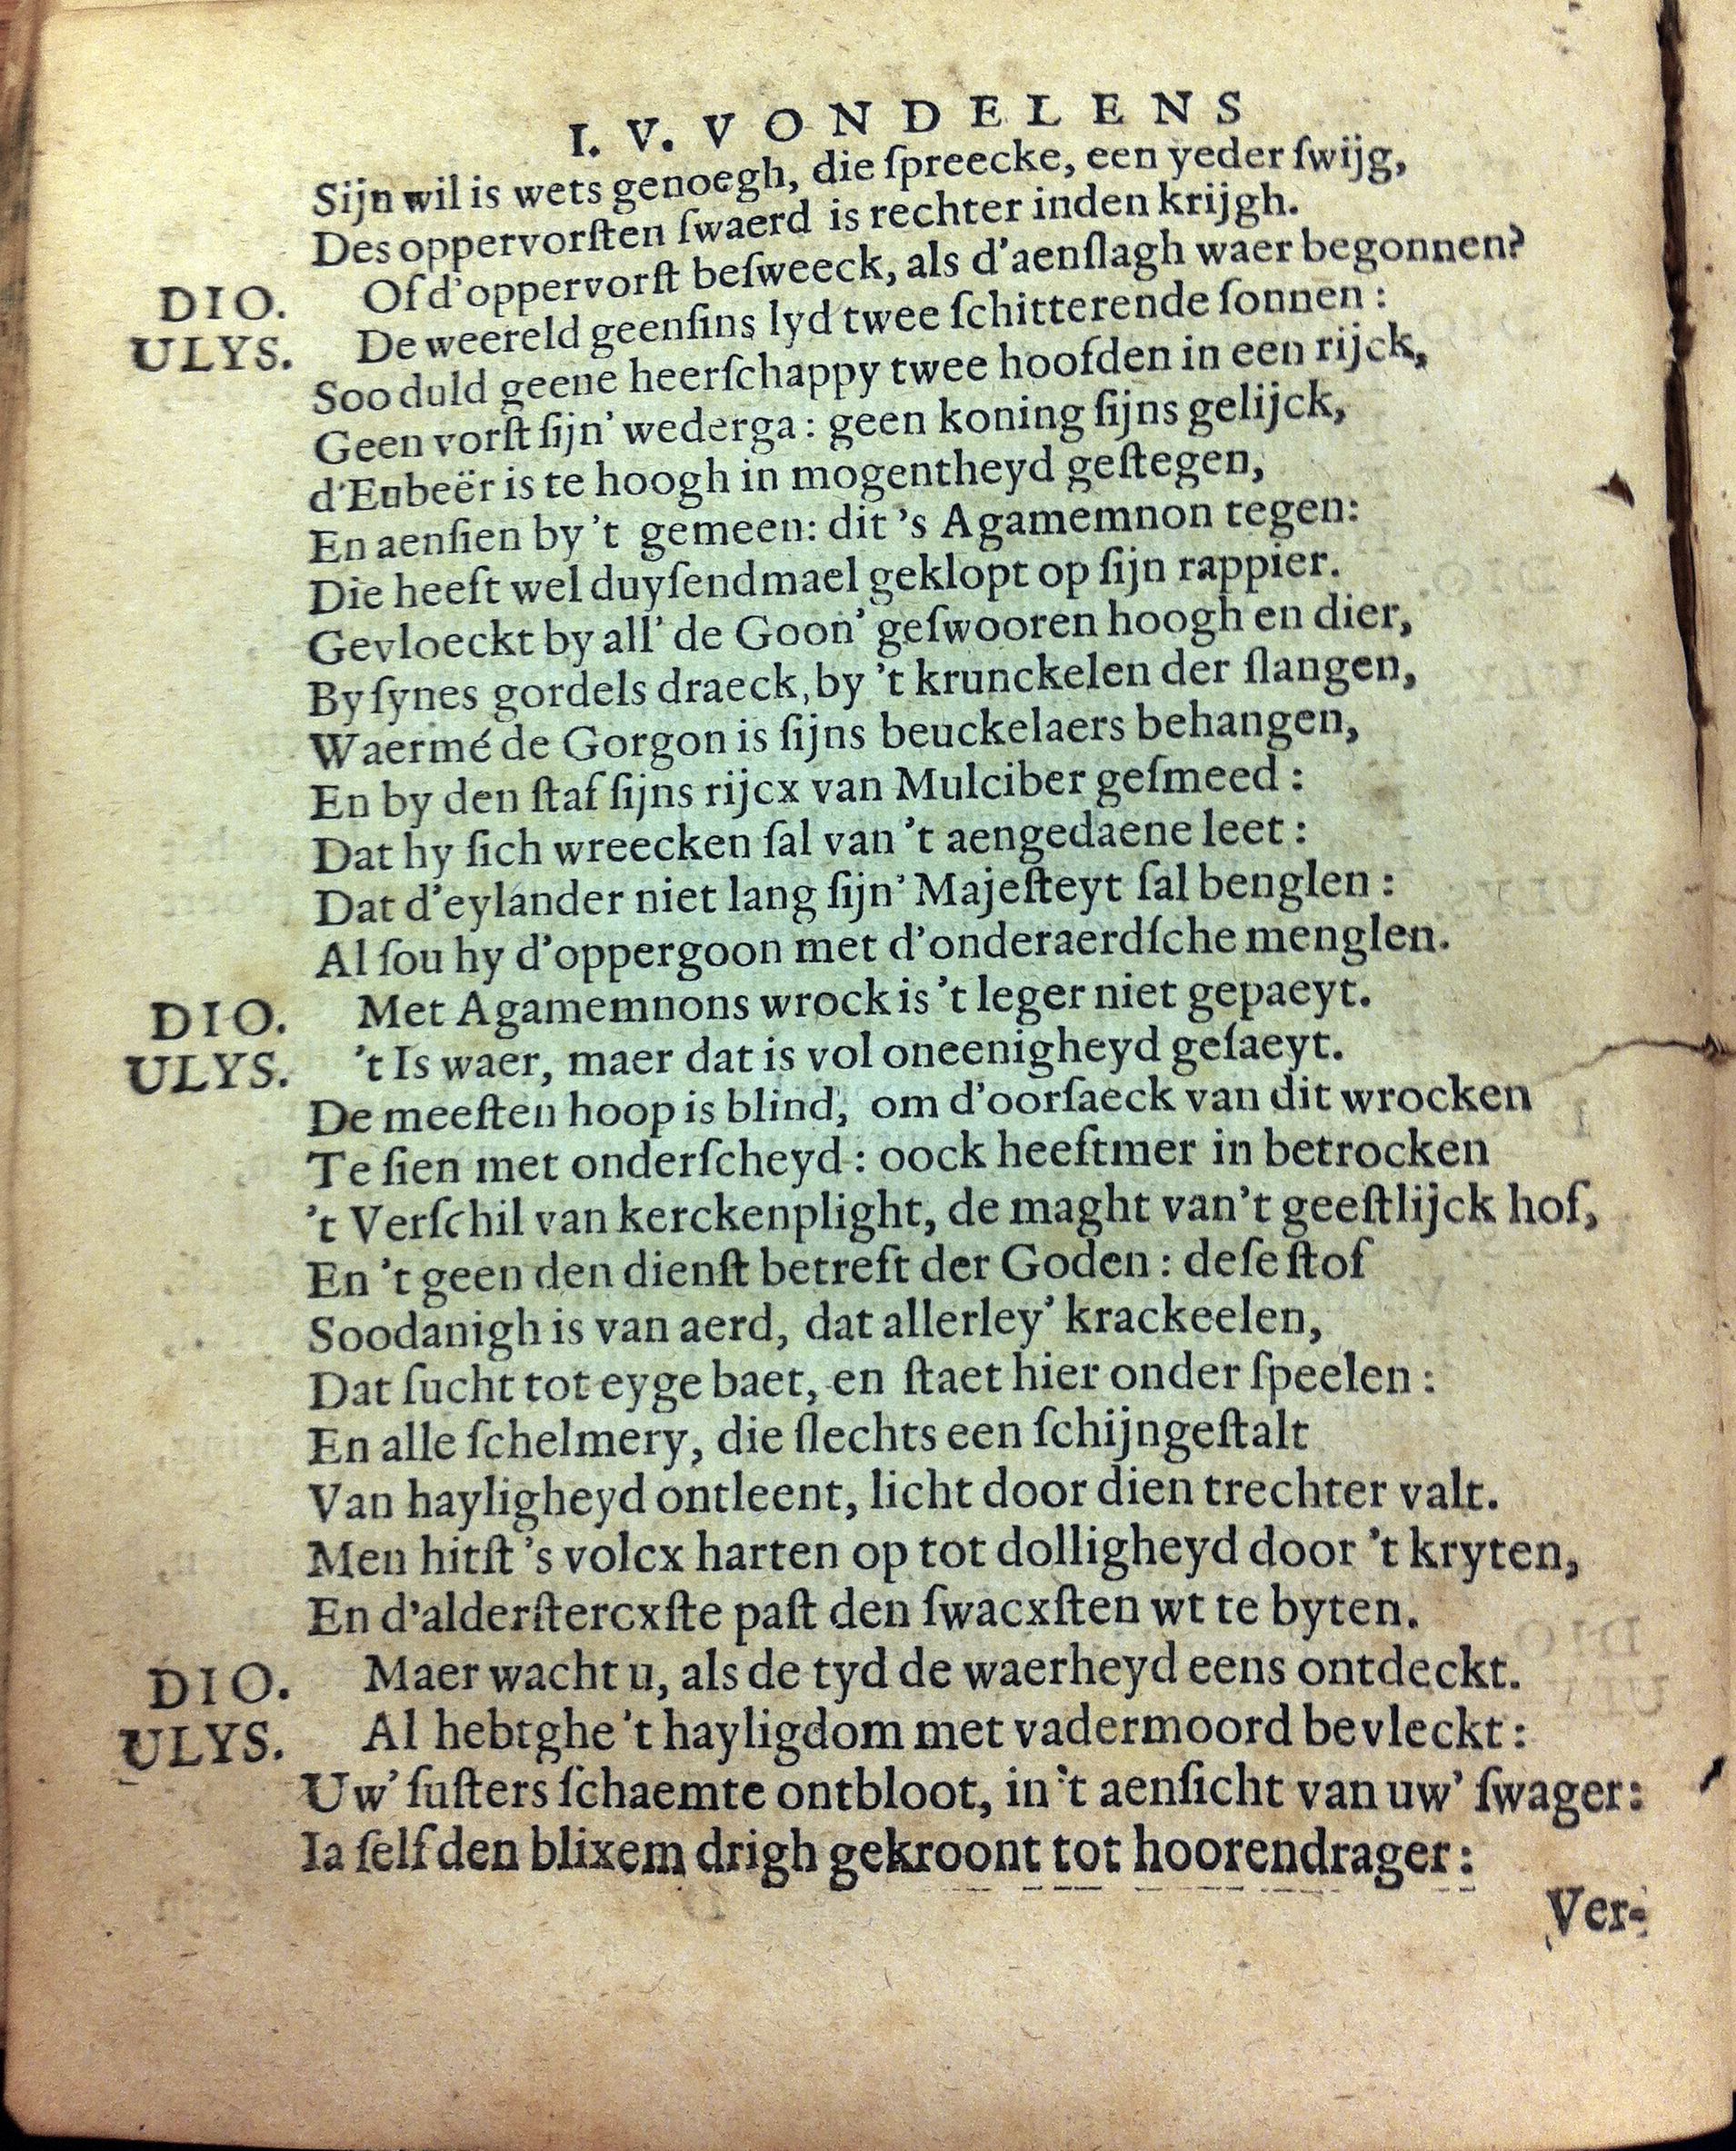 I. V. VONDELENS
Sijn wil is wets genoegh, die ſpreecke, een yeder ſwijg,
Des oppervorſten ſwaerd is rechter inden krijgh.
DIO. Of d'oppervorſt beſweeck, als d'aenſlagh waer begonnen?
ULYS. De weereld geenſins lyd twee ſchitterende ſonnen :
Soo duld geene heerſchappy twee hoofden in een rijck,
Geen vorſt ſijn' wederga : geen koning ſijns gelijck,
d'Eubeër is te hoogh in mogentheyd geſtegen,
En aenſien by 't gemeen: dit 's Agamemnon tegen:
Die heeft wel duyſendmael geklopt op ſijn rappier.
Gevloeckt by all' de Goon' geſwooren hoogh en dier,
By ſynes gordels draeck, by 't krunckelen der ſlangen,
Waermé de Gorgon is ſijns beuckelaers behangen,
En by den ſtaf ſijns rijcx van Mulciber geſmeed :
Dat hy ſich wreecken ſal van 't aengedaene leet :
Dat d'eylander niet lang ſijn' Majeſteyt ſal benglen :
Al ſou hy d'oppergoon met d'onderaerdſche menglen.
DIO. Met Agamemnons wrock is 't leger niet gepaeyt.
ULYS. 't Is waer, maer dat is vol oneenigheyd geſaeyt.
De meeſten hoop is blind, om d'oorſaeck van dit wrocken
Te ſien met onderſcheyd : oock heeftmer in betrocken
't Verſchil van kerckenplight, de maght van't geeſtlijck hof,
En 't geen den dienſt betreft der Goden : deſe ſtof
Soodanigh is van aerd, dat allerley' krackeelen,
Dat ſucht tot eyge baet, en ſtaet hier onder ſpeelen :
En alle ſchelmery, die ſlechts een ſchijngeſtalt
Van hayligheyd ontleent, licht door dien trechter valt.
Men hitſt 's volcx harten op tot dolligheyd door 't kryten,
En d'alderſtercxſte paſt den ſwacxſten wt te byten.
DIO. Maer wacht u, als de tyd de waerheyd eens ontdeckt.
ULYS. Al hebtghe 't hayligdom met vadermoord bevleckt :
Uw' ſuſters ſchaemte ontbloot, in 't aenſicht van uw' ſwager:
Ia ſelf den blixem drigh gekroont tot hoorendrager :
Ver-